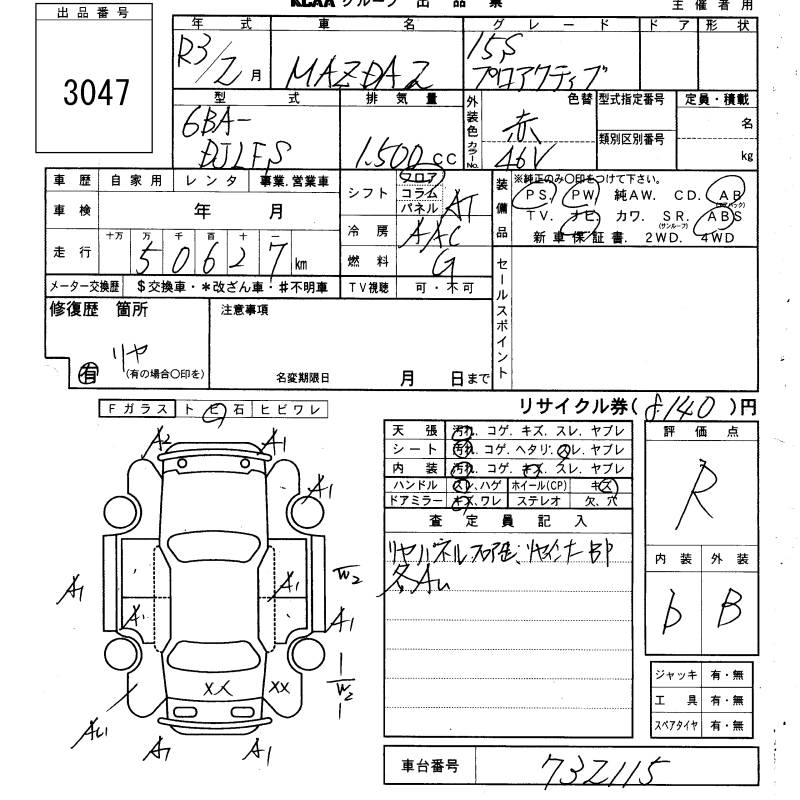 KCAA グループ 出 品 票
主 催 者 用
出 品 番 号
3047
年 式
車 名
グ レ ー ド
ド ア
形 状
R3/2 月
MAZDA2
15S
プロアクティブ
型 式
排 気 量
外装色 カラーNo.
色替
型式指定番号
定員・積載
6BA-
DJLFS
1.500 cc
赤
46V
類別区別番号
名
kg
車 歴
自 家 用
レ ン タ
事業.営業車
シフト
フロア
コラム
パネル
AT
装備品
※純正のみ〇印をつけて下さい。
PS. PW 純AW. CD. AB
(エアバック)
TV. ナビ. カワ. SR. ABS
(サンルーフ)
新 車 保 証 書. 2WD. 4WD
車 検
年 月
冷 房
AAC
走 行
十万 万 千 百 十 一
5 0 6 2 7 km
燃 料
G
メーター交換歴
$交換車・*改ざん車・#不明車
TV視聴
可・不可
セールスポイント
修復歴 箇所
リヤ
有
(有の場合〇印を)
注意事項
名変期限日 月 日まで
リサイクル券( 8140 )円
Fガラス
ト ビ 石
ヒビワレ
天 張
汚れ. コゲ. キズ. スレ. ヤブレ
シ ー ト
汚れ. コゲ. ヘタリ. スレ. ヤブレ
内 装
汚れ. コゲ. キズ. スレ. ヤブレ
ハンドル
スレ.ハゲ
ホイール(CP)
キズ
ドアミラー
キズ.ワレ
ステレオ
欠、穴
評 価 点
R
査 定 員 記 入
リヤパネルフロア歪、リヤインナーBP
各AU
内 装
外 装
D
B
A2
A1
A1
A1
A1
A1
W2
A1
W2
XX
XX
AU
A1
A1
ジャッキ
有・無
工 具
有・無
スペアタイヤ
有・無
車台番号
732115